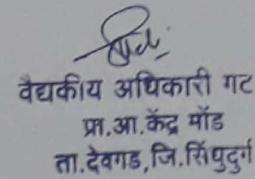 वैद्यकीय अधिकारी गट
प्रा.आ.केंद्र मोंड
ता.देवगड,जि.सिंधुदुर्ग